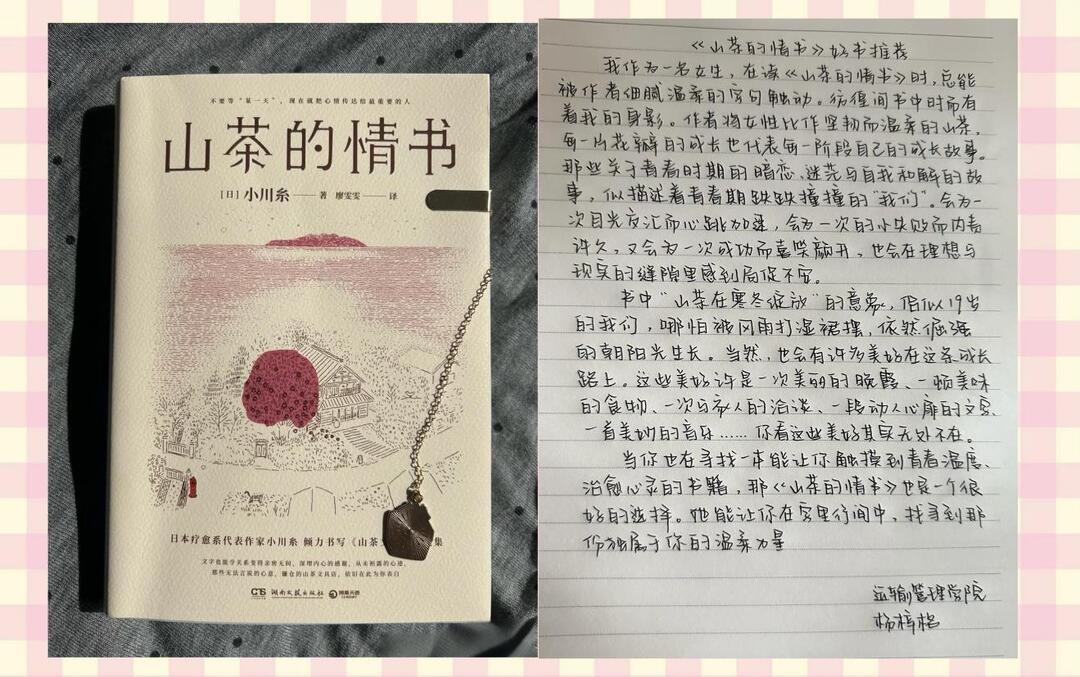 不要等“某一天”，现在就把心情传达给最重要的人
山茶的情书
[日]小川糸——著 廖雯雯——译
日本疗愈系代表作家小川糸 倾力书写《山茶 集
文字也能学关系变得亲密无间，深埋内心的感谢，从未袒露的心迹，
那些无法言说的心意，镰仓的山茶文具店，依旧在此为你表白
湖南文艺出版社
博集天卷
《山茶的情书》好书推荐
我作为一名女生，在读《山茶的情书》时，总能
被作者细腻温柔的字句触动。彷徨间书中时而有
着我的身影。作者将女性比作坚韧而温柔的山茶，
每一片花瓣的成长也代表每一阶段自己的成长故事。
那些关于青春时期的暗恋、迷茫与自我和解的故
事，似描述着青春期跌跌撞撞的“我们”。会为一
次目光交汇而心跳加速，会为一次的小失败而内耗
许久，又会为一次成功而喜笑颜开，也会在理想与
现实的缝隙里感到局促不安。
书中“山茶在寒冬绽放”的意象，恰似19岁
的我们，哪怕被风雨打湿裙摆，依然倔强
的朝阳光生长。当然，也会有许多美好在这条成长
路上。这些美好许是一次美丽的晚霞、一顿美味
的食物、一次与家人的洽谈、一段动人心扉的文字、
一首美妙的音乐……你看这些美好其实无处不在。
当你也在寻找一本能让你触摸到青春温度、
治愈心灵的书籍，那《山茶的情书》也是一个很
好的选择。她能让你在字里行间中，找寻到那
份独属于你的温柔力量
运输管理学院
杨梓